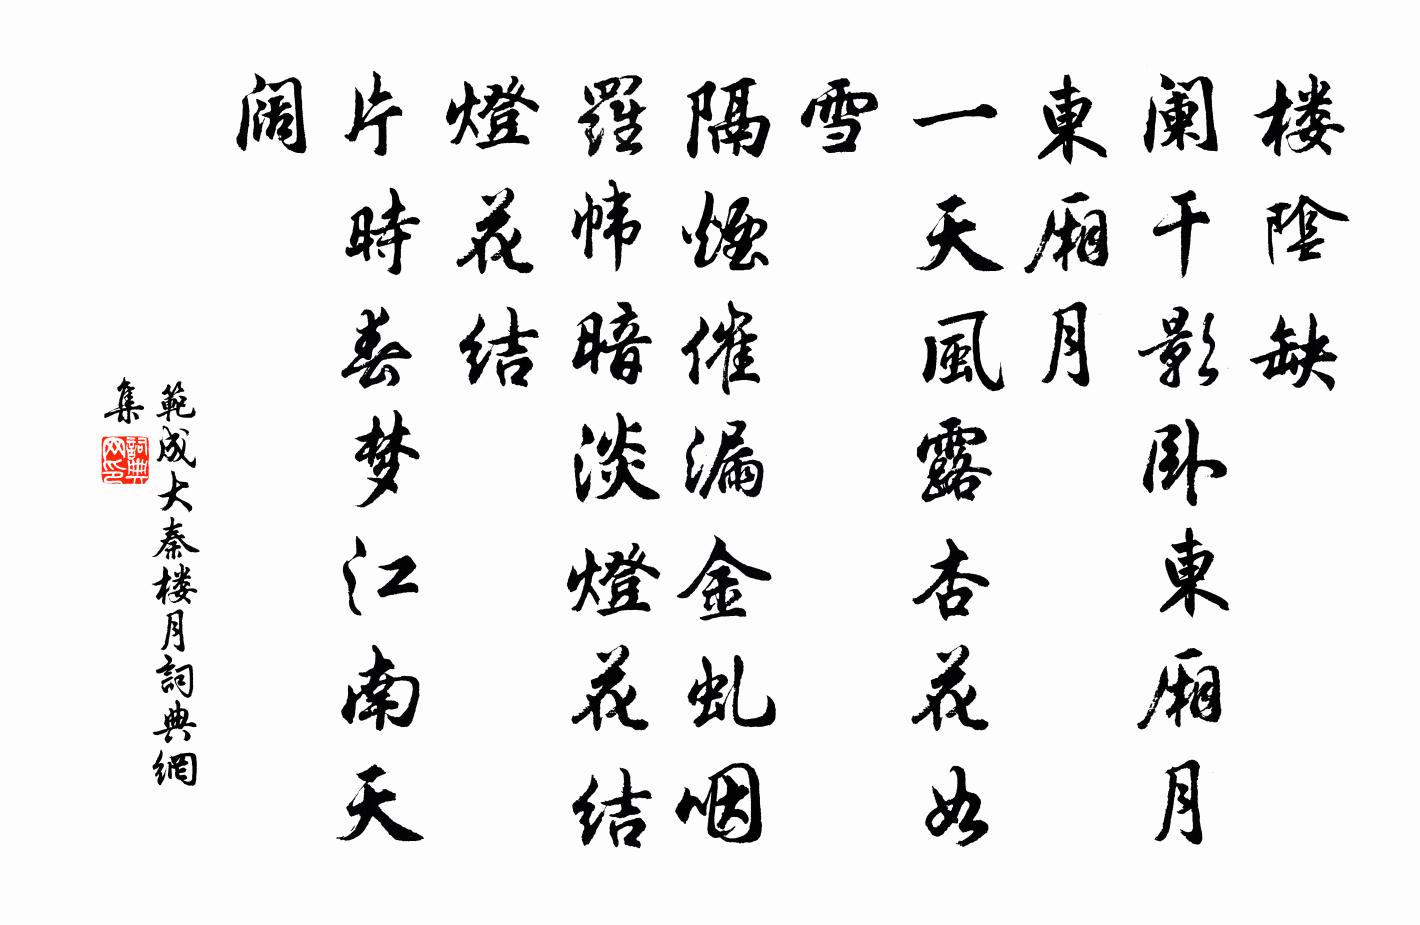 楼陰缺
阑干影卧東厢月
東厢月
一天風露杏花如
雪
隔煙催漏金虬咽
羅帏暗淡燈花结
燈花结
片時春梦江南天
阔
範成大秦楼月詞典網
集
詞典
网印